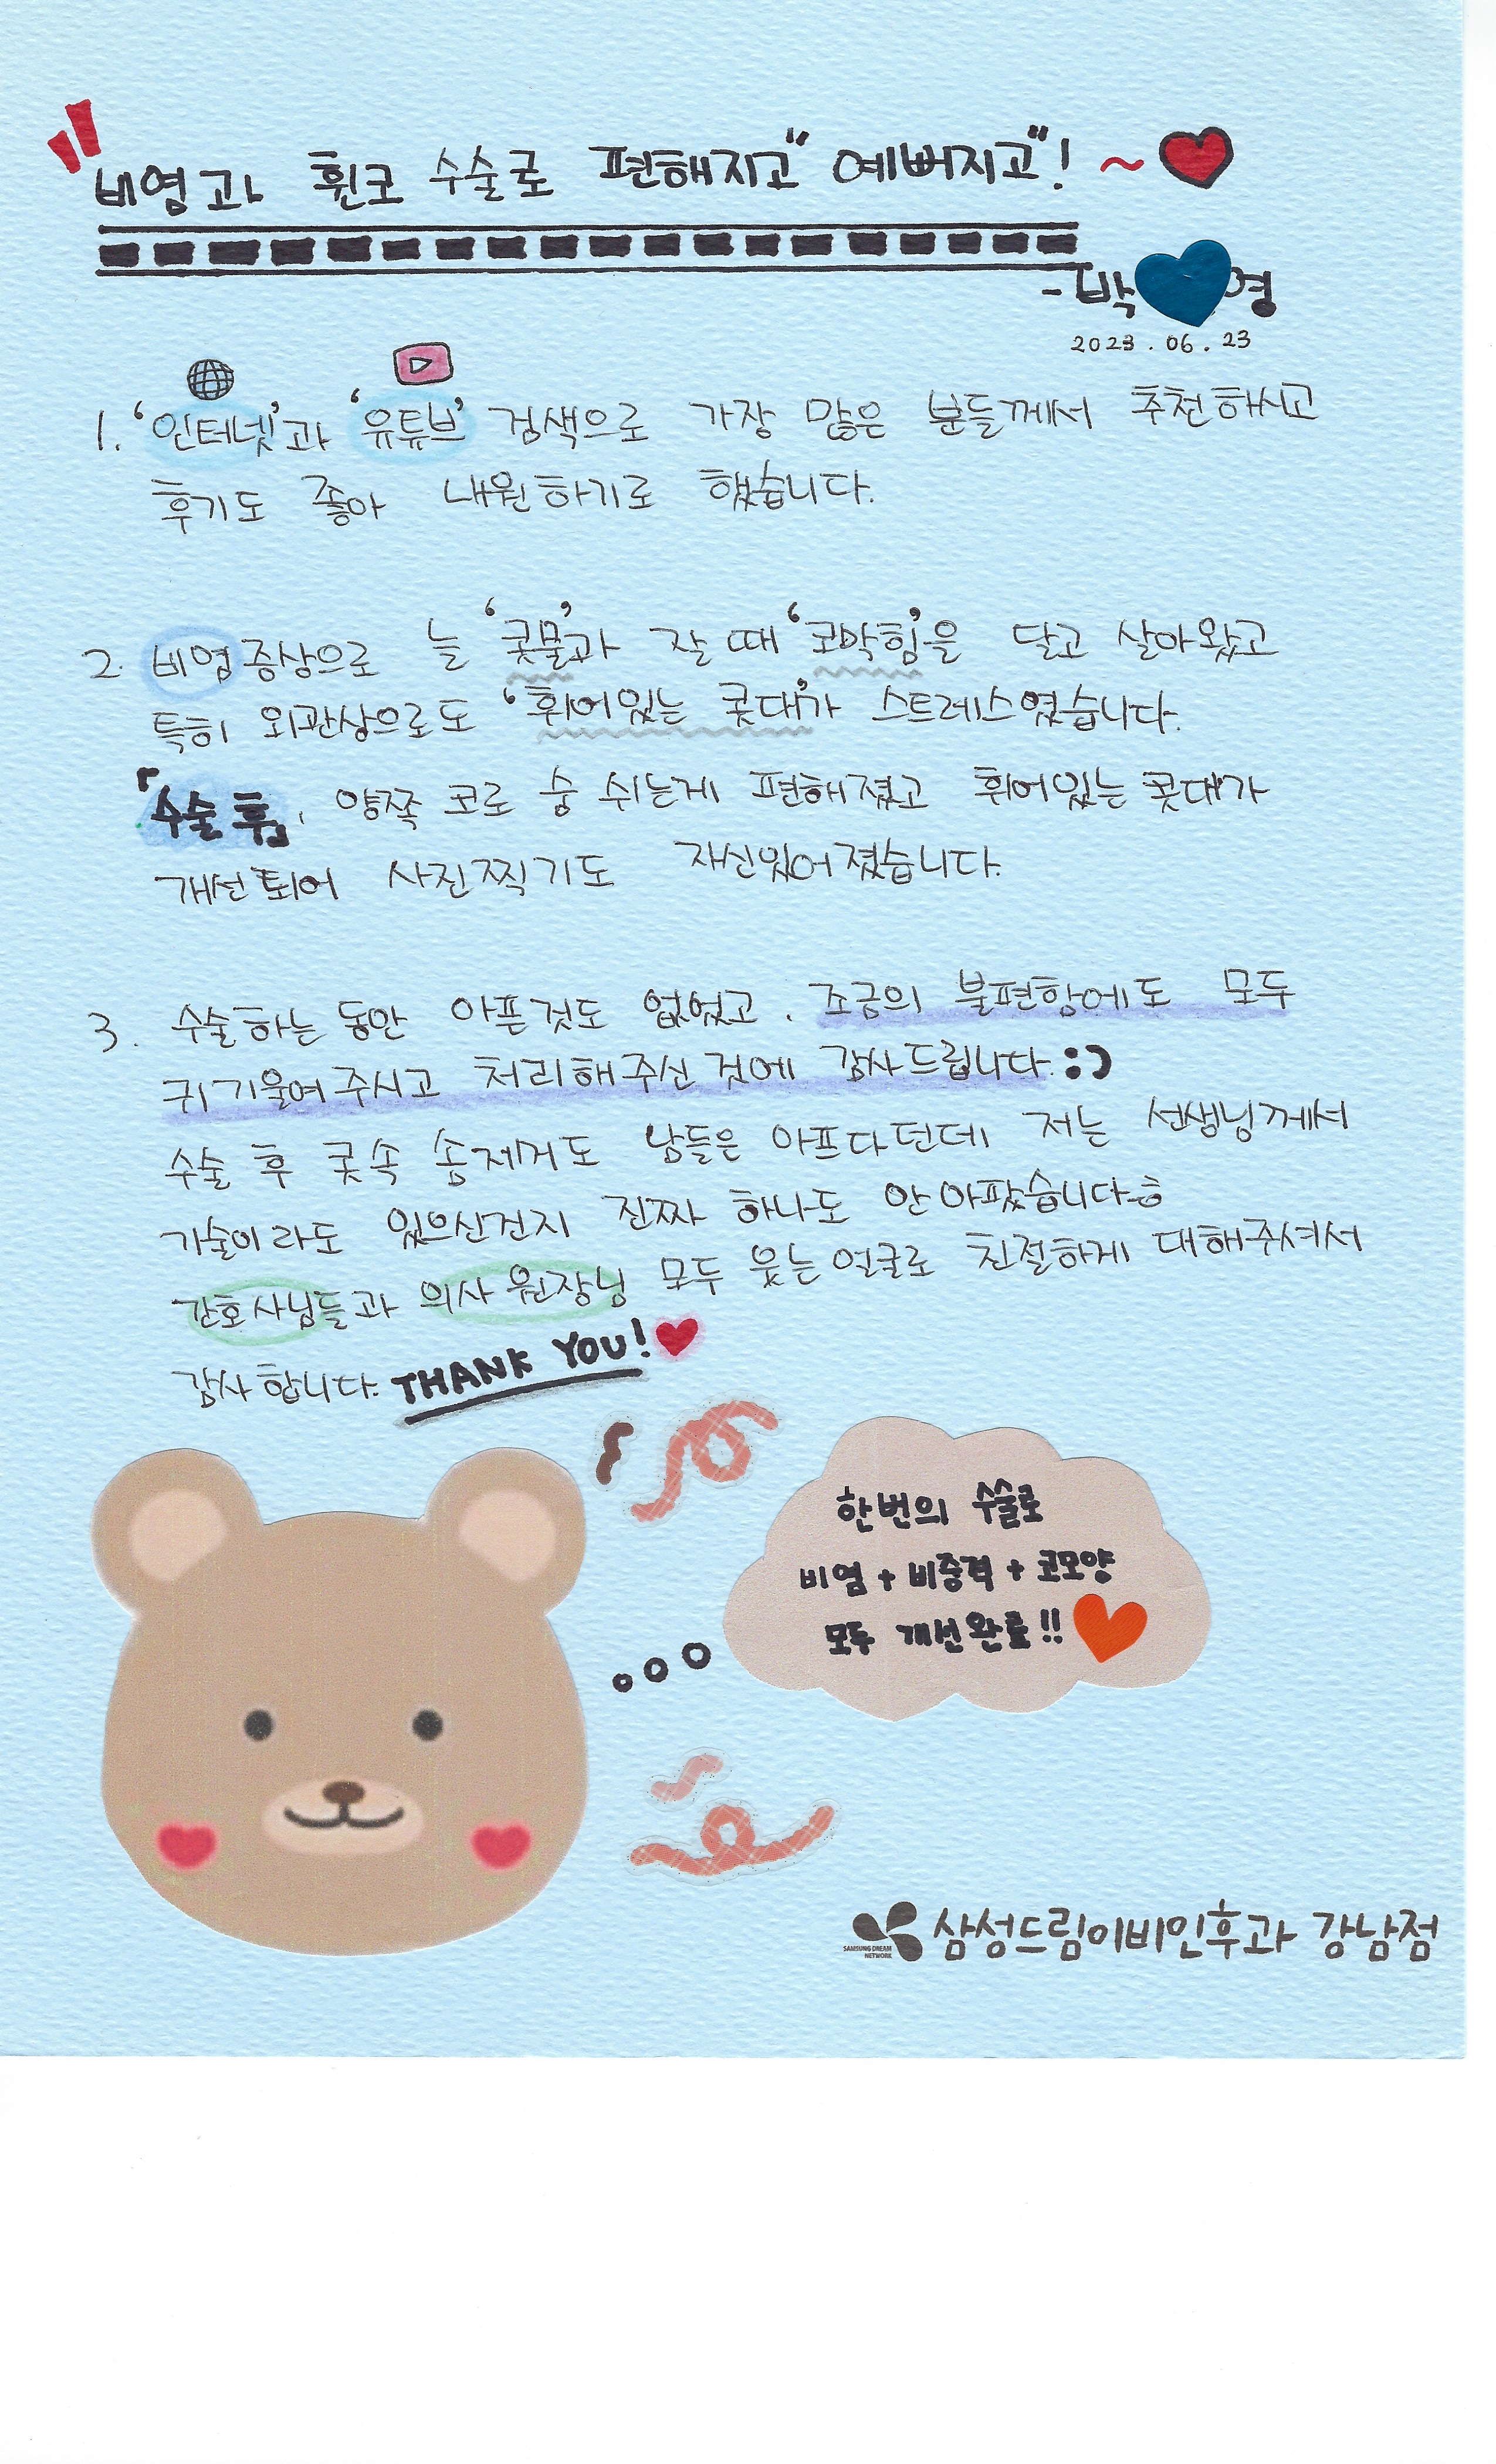 비염과 휜코 수술로 편해지고" 예뻐지고"! ~
- 박 영
2023.06.23
1. '인터넷'과 '유튜브' 검색으로 가장 많은 분들께서 추천하시고
후기도 좋아 내원하기로 했습니다.
2. 비염증상으로 늘 '콧물'과 잘 때 '코막힘'을 달고 살아왔고
특히 외관상으로도 '휘어있는 콧대'가 스트레스였습니다.
「수술 후」, 양쪽 코로 숨 쉬는게 편해졌고 휘어있는 콧대가
개선되어 사진찍기도 자신있어졌습니다.
3. 수술하는 동안 아픈것도 없었고, 조금의 불편함에도 모두
귀 기울여주시고 처리해주신 것에 감사드립니다. :)
수술 후 콧속 솜제거도 남들은 아프다던데 저는 선생님께서
기술이라도 있으신건지 진짜 하나도 안 아팠습니다ㅎ
간호사님들과 의사 원장님 모두 웃는 얼굴로 친절하게 대해주셔서
감사합니다. THANK YOU!
한번의 수술로
비염 + 비중격 + 코모양
모두 개선완료!!
SAMSUNG DREAM
NETWORK
삼성드림이비인후과 강남점